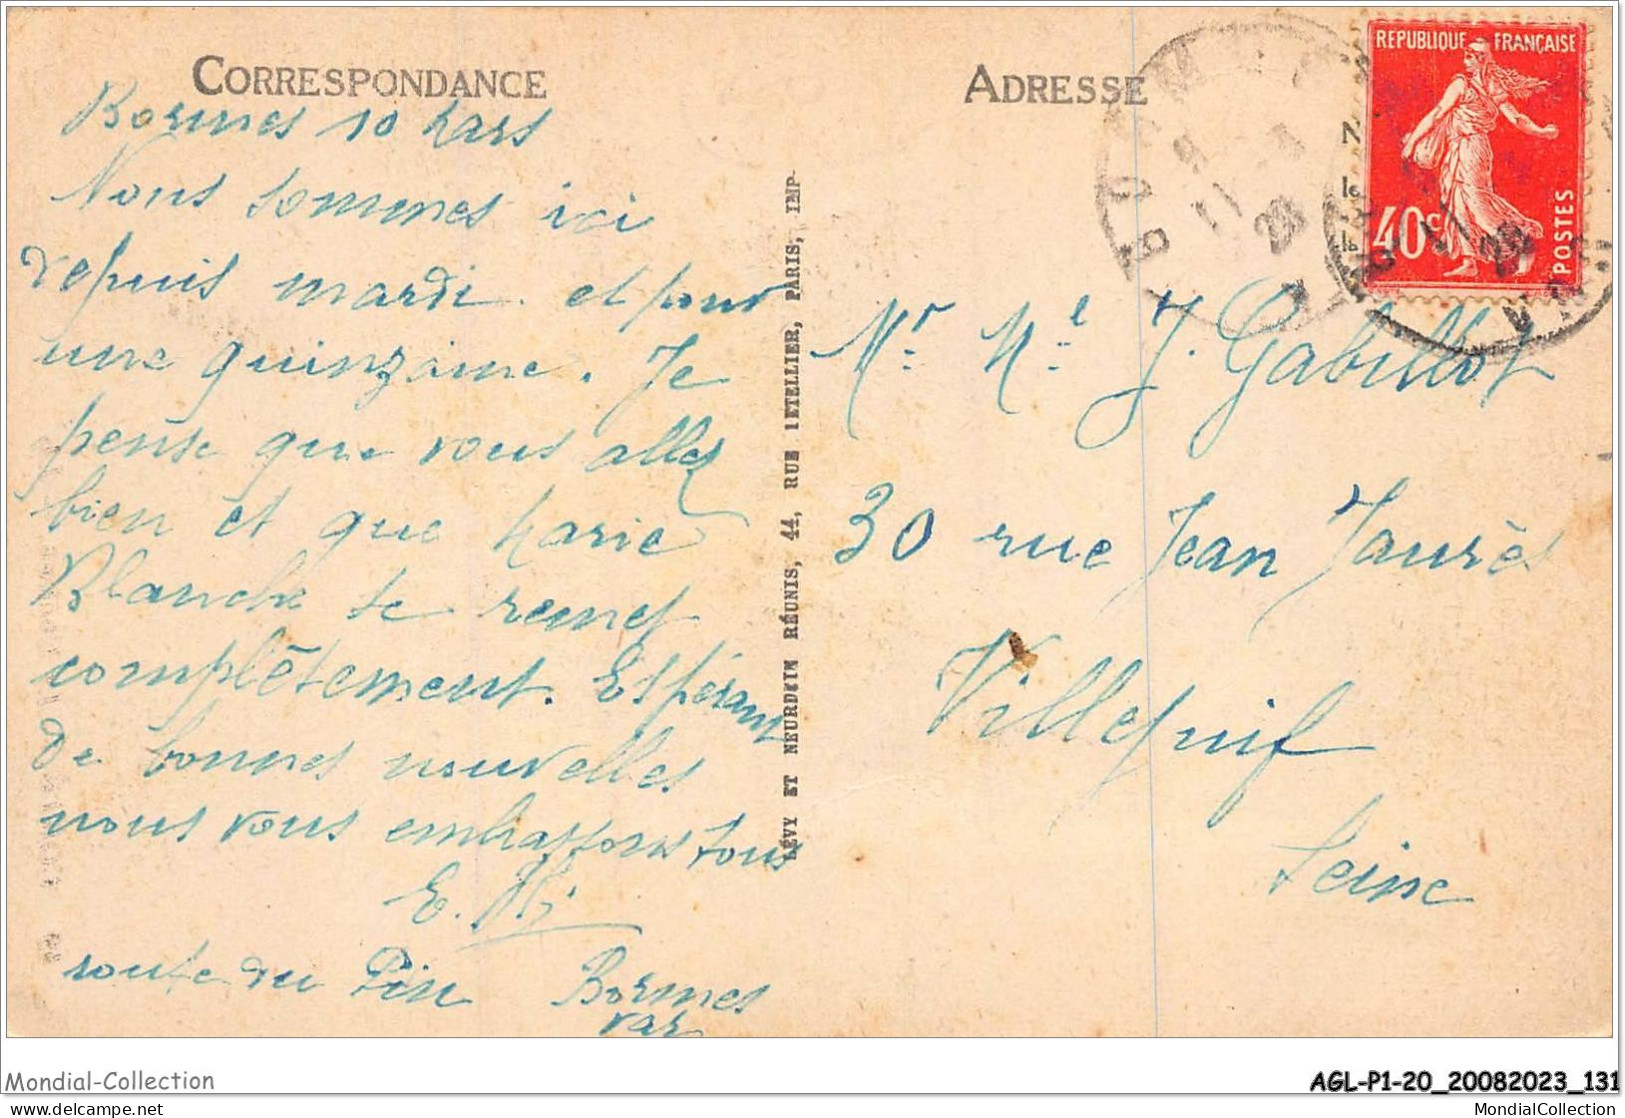 CORRESPONDANCE
Bormes 10 Mars
Nous sommes ici
depuis mardi. et pour
une quinzaine. Je
pense que vous allez
bien et que Marie
Blanche se remet
complètement. Espérant
de bonnes nouvelles
nous vous embrassons tous
route du Pin Bormes
Var
LÉVY ET NEURDEIN RÉUNIS, 44, RUE LETELLIER, PARIS, IMP.
ADRESSE
REPUBLIQUE FRANÇAISE
40c
POSTES
Mr. Me. J. Gabillot
30 rue Jean Jaurès
Villejuif
Seine
Mondial-Collection
AGL-P1-20_20082023_131
delcampe.net
MondialCollection